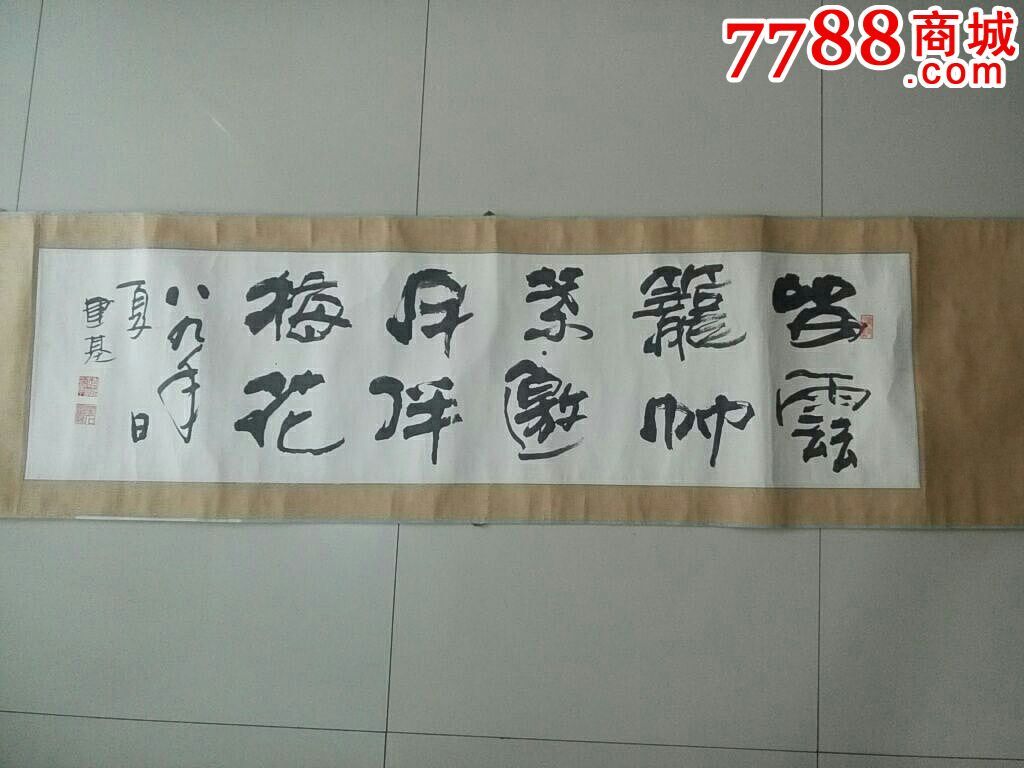 7788商城
.com
留雲
籠竹
葉邀
月伴
梅花
八九年
夏日
基